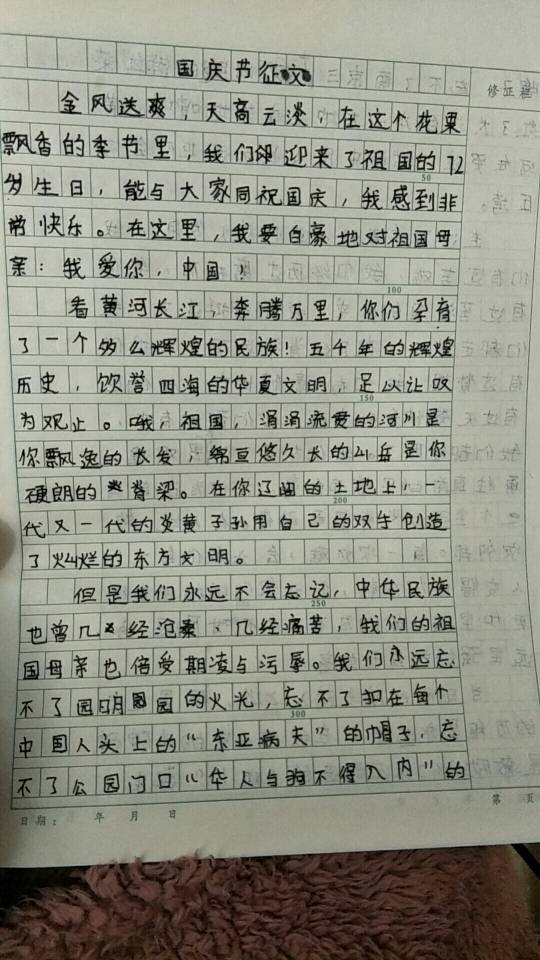 国庆节征文
修正栏
金风送爽，天高云淡，在这个花果
飘香的季节里，我们即迎来了祖国的72
50
岁生日，能与大家同祝国庆，我感到非
常快乐。在这里，我要自豪地对祖国母
亲：我爱你，中国！
100
看黄河长江，奔腾万里，你们孕育
了一个多么辉煌的民族！五千年的辉煌
历史，饮誉四海的华夏文明，足以让叹
150
为观止。哦，祖国，涓涓流委的河川是
你飘逸的长发，绵亘悠久长的山岳是你
硬朗的脊梁。在你辽阔的土地上，一
200
代又一代的炎黄子孙用自己的双手创造
了灿烂的东方文明。
但是我们永远不会忘记，中华民族
250
也曾几经沧桑、几经痛苦，我们的祖
国母亲也倍受期凌与污辱。我们永远忘
不了圆明园的火光，忘不了扣在每个
300
中国人头上的“东亚病夫”的帽子，忘
不了公园门口“华人与狗不得入内”的
日期： 年 月 日
第 页